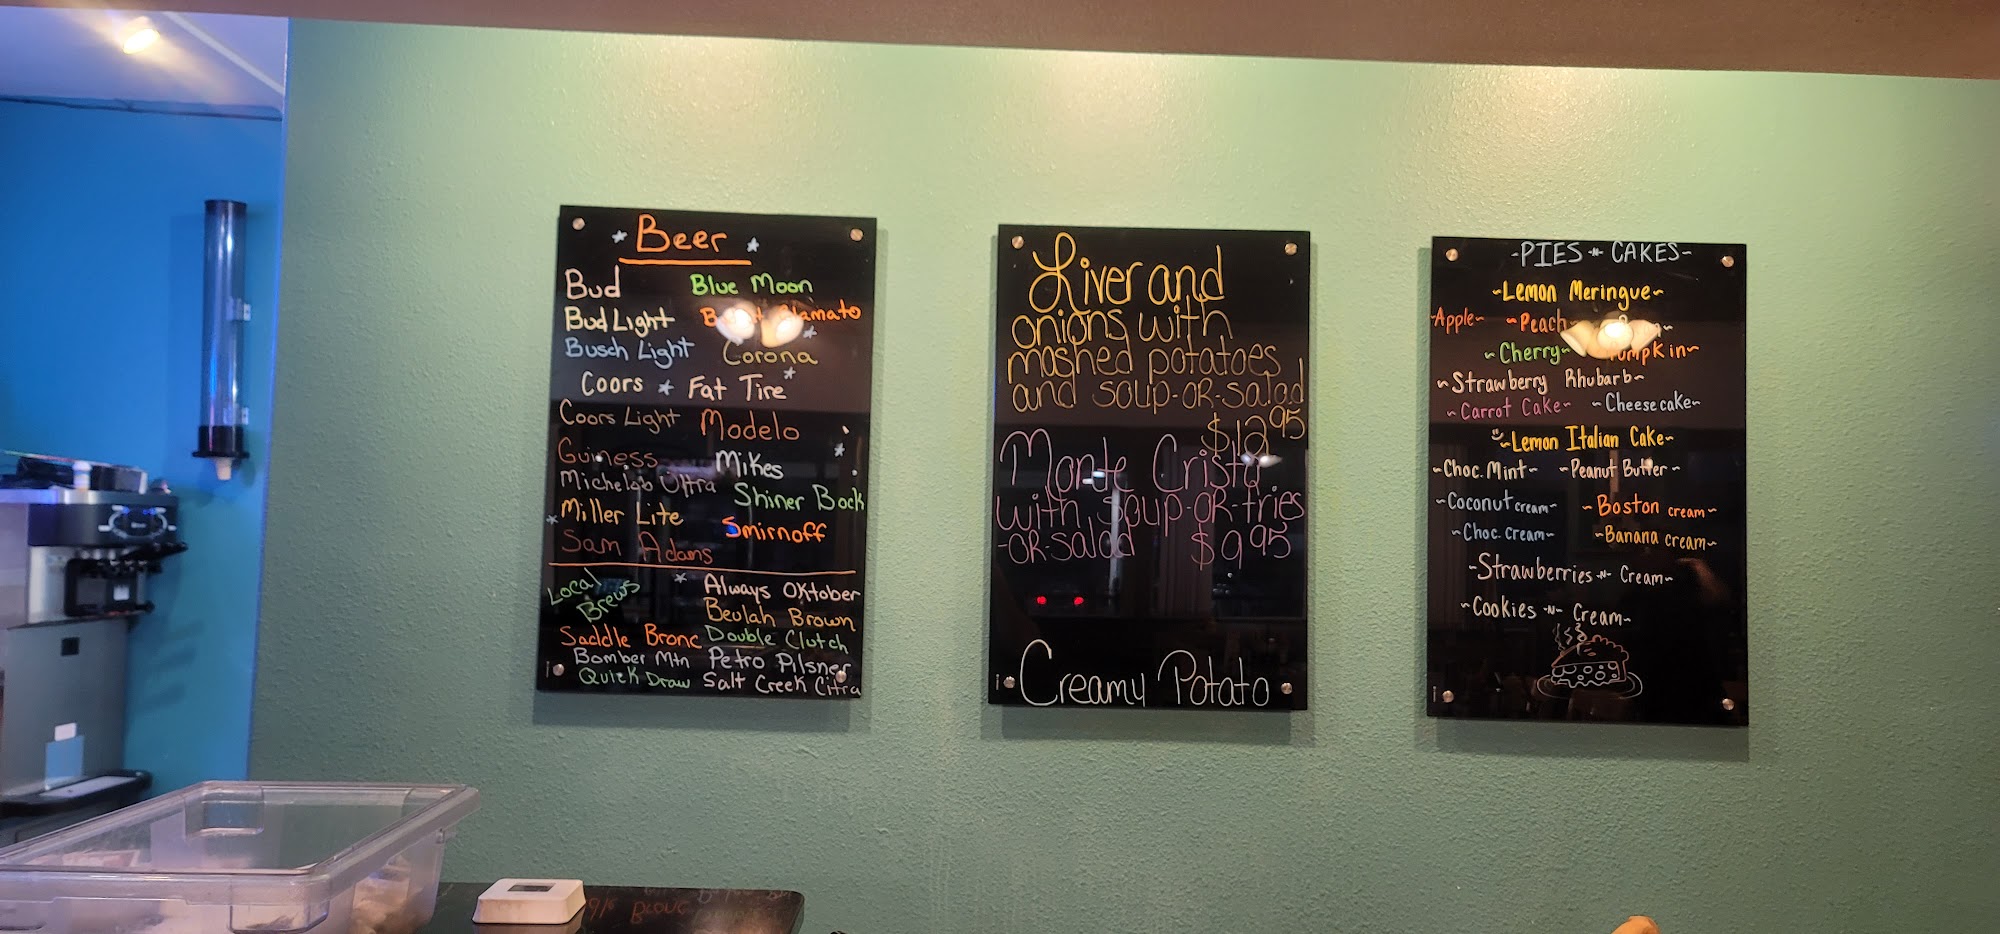 Beer
Bud Blue Moon
Bud Light
Busch Light Corona
Coors Fat Tire
Coors Light Modelo
Guiness Mikes
Michelob Ultra Shiner Bock
Miller Lite Smirnoff
Sam Adams
Local Brews
Saddle Bronc
Bomber Mtn
Quick Draw
Always Oktober
Beulah Brown
Double Clutch
Petro Pilsner
Salt Creek Citra
Liver and
onions with
mashed potatoes
and soup-OR-salad
$12.95
Monte Cristo
with soup-OR-fries
-OR-salad $9.95
Creamy Potato
-PIES -N- CAKES-
~Lemon Meringue~
Apple~ ~Peach
~Cherry~
~Strawberry Rhubarb~
~Carrot Cake~ ~Cheesecake~
~Lemon Italian Cake~
~Choc. Mint~ ~Peanut Butter~
~Coconut cream~ ~Boston cream~
~Choc. cream~ ~Banana cream~
~Strawberries -N- Cream~
~Cookies -N- Cream~